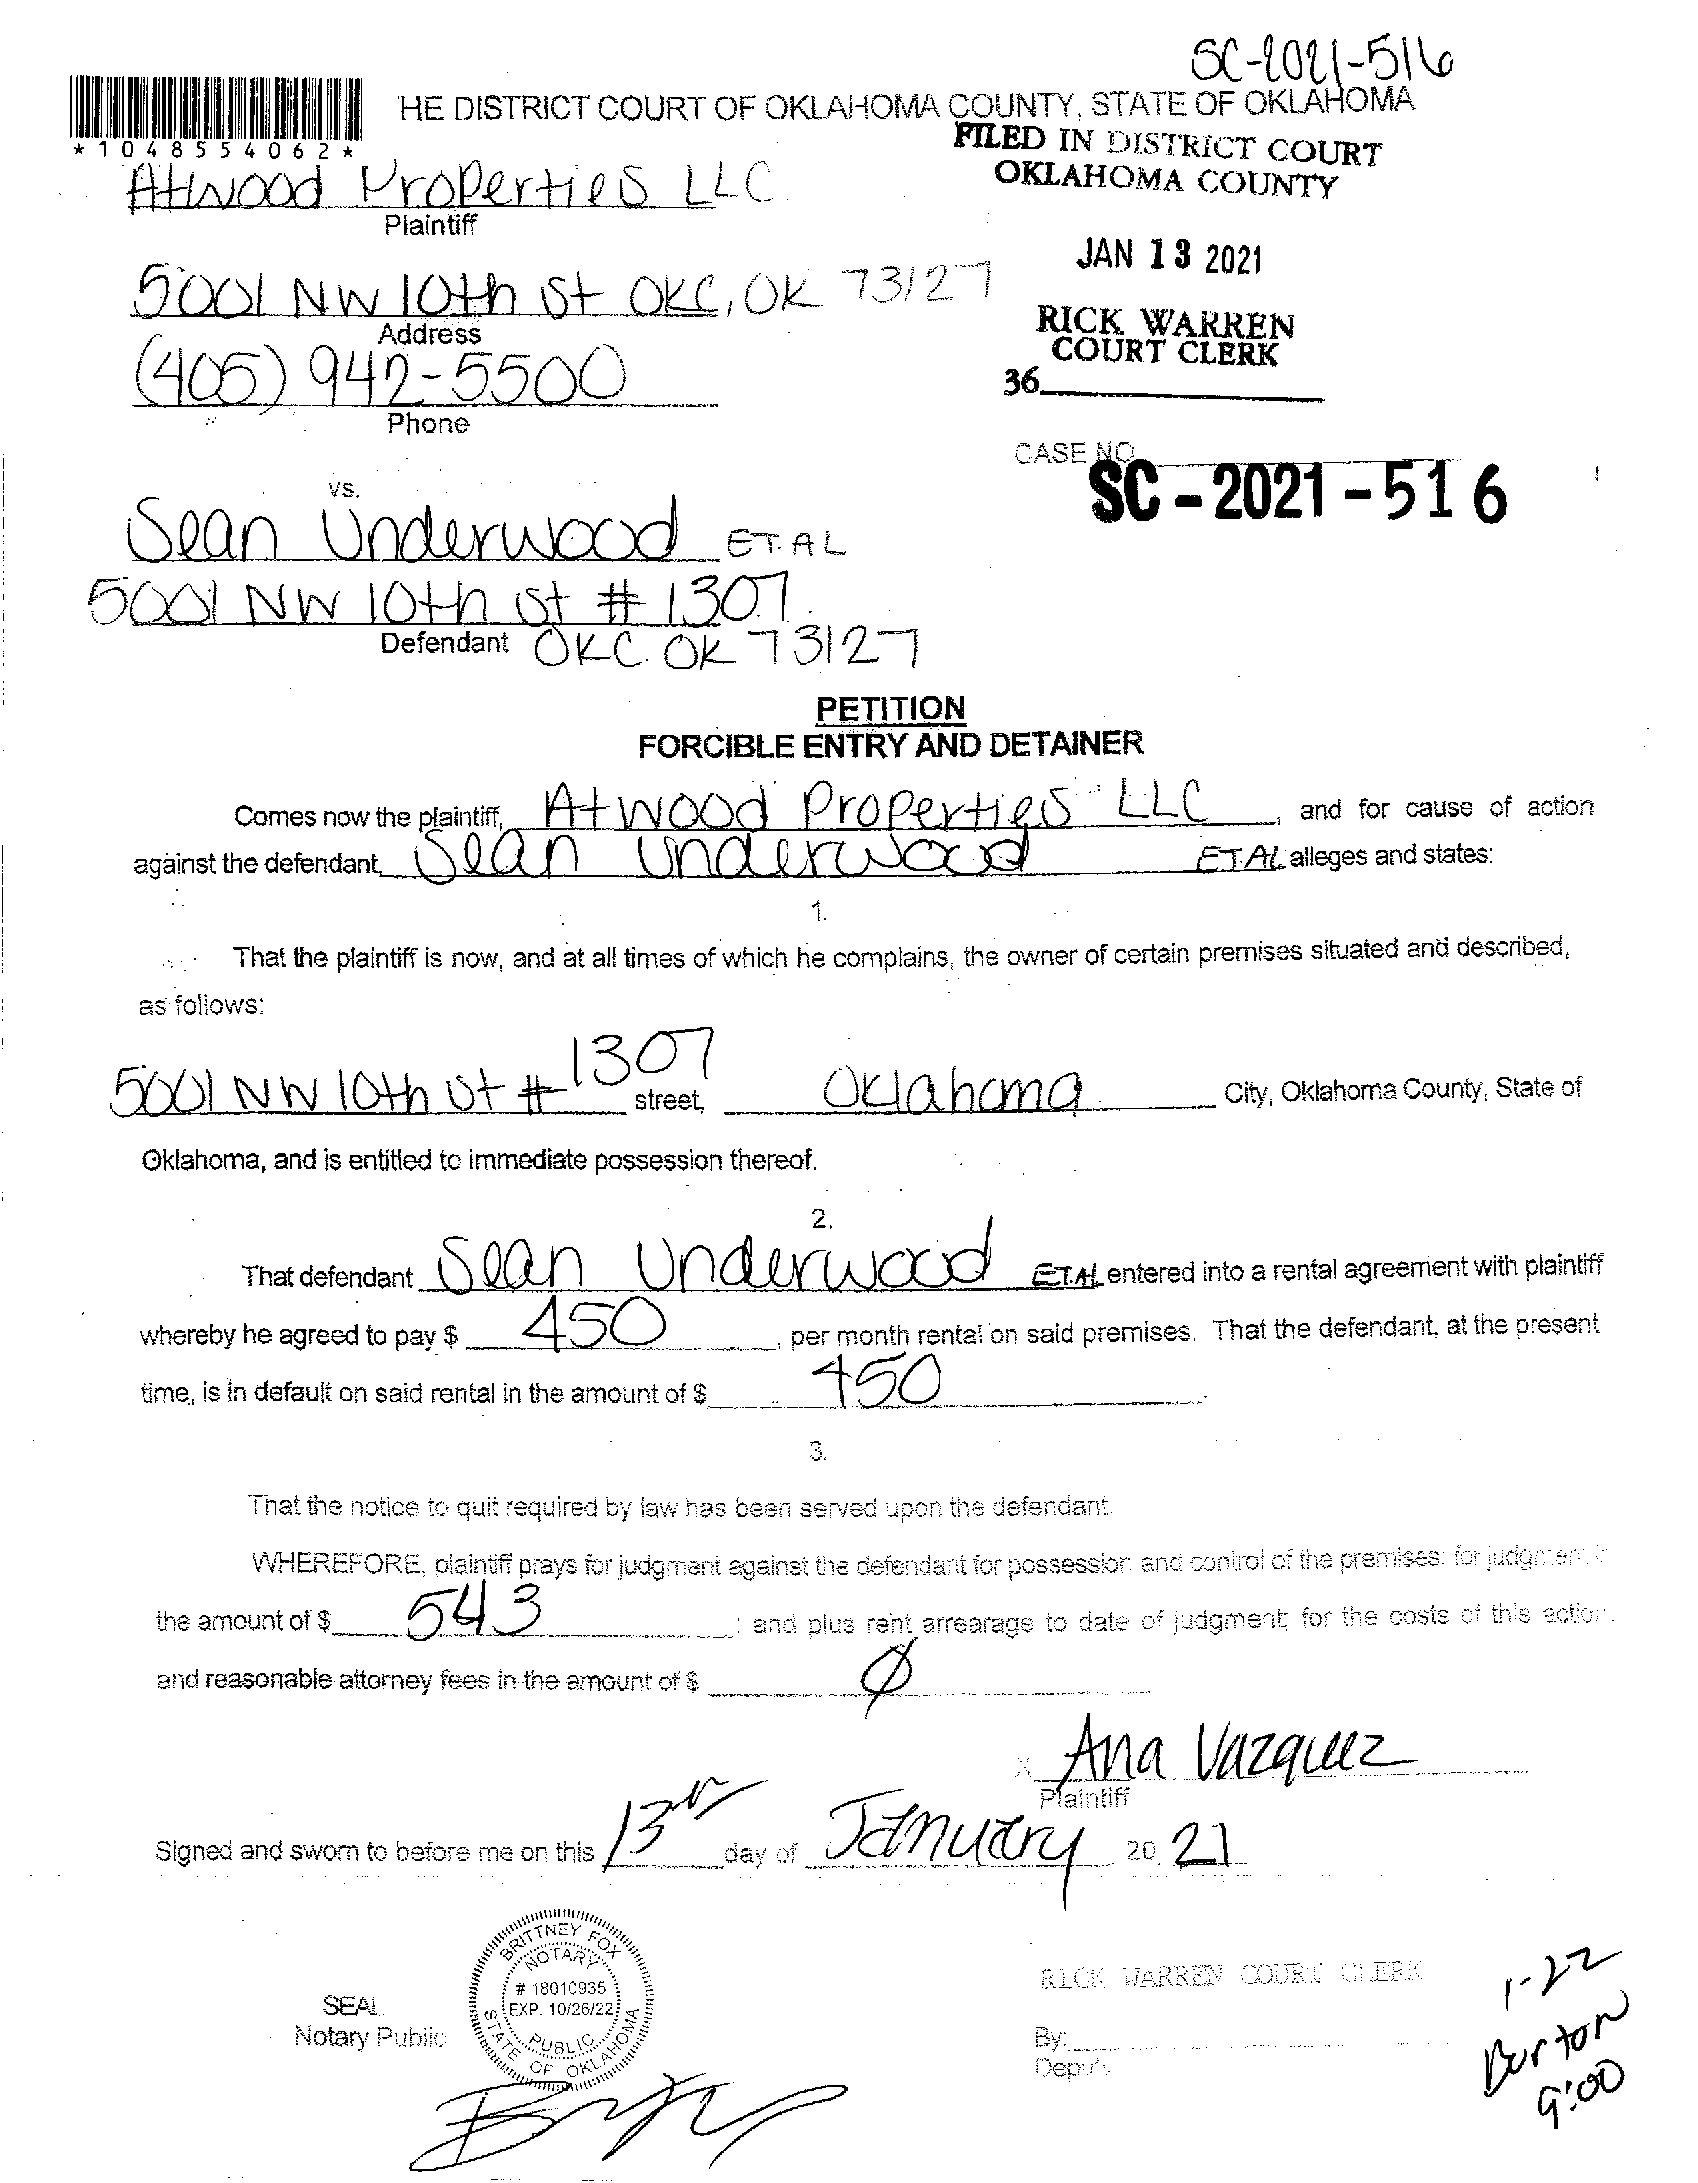 SC-2021-516
HE DISTRICT COURT OF OKLAHOMA COUNTY, STATE OF OKLAHOMA
*1048554062*
FILED IN DISTRICT COURT
OKLAHOMA COUNTY
Atwood Properties LLC
Plaintiff
JAN 13 2021
5001 NW 10th St OKC, OK 73127
Address
RICK WARREN
COURT CLERK
(405) 942-5500
36
Phone
CASE NO.
SC-2021-516
vs.
Sean Underwood ET. AL
5001 NW 10th St # 1307
Defendant OKC. OK 73127
PETITION
FORCIBLE ENTRY AND DETAINER
Comes now the plaintiff, Atwood Properties LLC, and for cause of action
against the defendant, Sean Underwood ET. AL alleges and states:
1.
That the plaintiff is now, and at all times of which he complains, the owner of certain premises situated and described,
as follows:
5001 NW 10th St # 1307 street, Oklahoma City, Oklahoma County, State of
Oklahoma, and is entitled to immediate possession thereof.
2.
That defendant Sean Underwood ET. AL entered into a rental agreement with plaintiff
whereby he agreed to pay $ 450, per month rental on said premises. That the defendant, at the present
time, is in default on said rental in the amount of $ 450
3.
That the notice to quit required by law has been served upon the defendant.
WHEREFORE, plaintiff prays for judgment against the defendant for possession and control of the premises; for judgment in
the amount of $ 543; and plus rent arrearage to date of judgment; for the costs of this action,
and reasonable attorney fees in the amount of $ Ø
X Ana Vazquez
Plaintiff
Signed and sworn to before me on this 13th day of January 20 21
BRITTNEY FOX
NOTARY
# 18010935
EXP. 10/26/22
PUBLIC
STATE OF OKLAHOMA
SEAL
Notary Public
RICK WARREN COURT CLERK
By:
Deputy
1-22
Burton
9:00